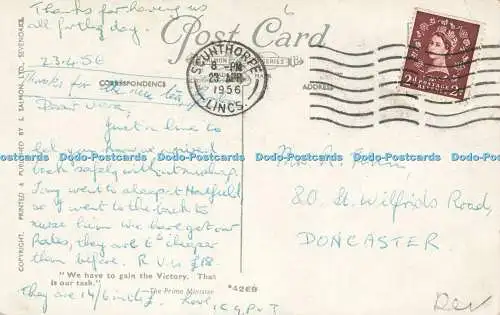 Thanks for having us
all for the day.
Post Card
6
23.4.56
CORRESPONDENCE
ADDRESS
SCUNTHORPE
8 - PM
23 APR
1956
LINCS.
2D POSTAGE REVENUE 2D
Thanks for the nice tea,
Dear Vera,
Just a line to
let you know we arrived
back safely without mishap.
went to sleep at Hatfield
so I went to the back to
nurse him. We have got our
Rates, they are cheaper
than before. R.V. is £18
"We have to gain the Victory. That
is our task." —The Prime Minister
They are 14/6 in the £. Love
Mrs. R.
80 St. Wilfrids Road,
DONCASTER
COPYRIGHT. PRINTED & PUBLISHED BY J. SALMON, LTD., SEVENOAKS.
*4269
Dev
Postcards